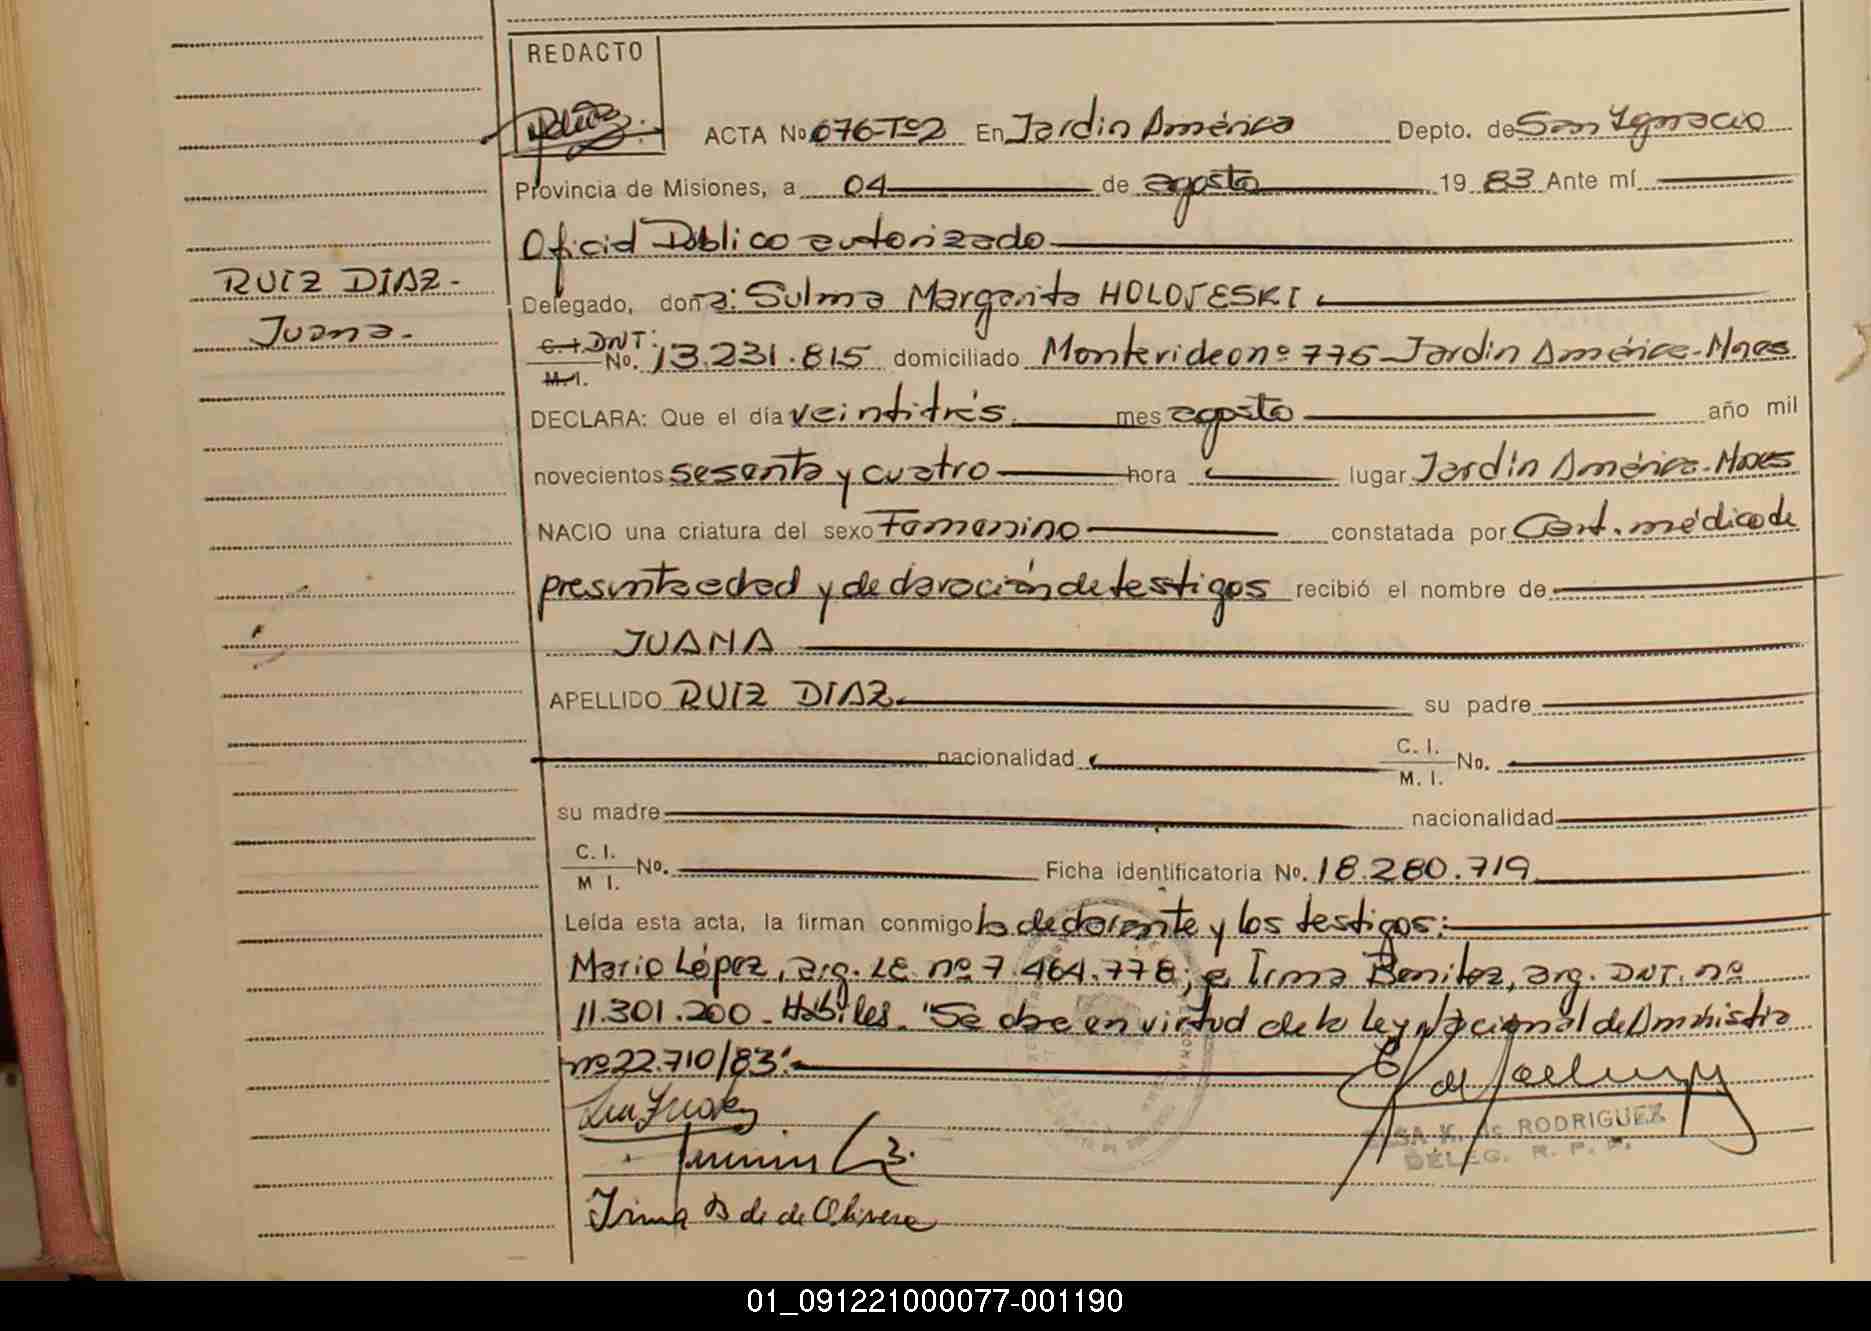 REDACTO
ACTA No 076-Tº2 En Jardín América Depto. de San Ignacio
Provincia de Misiones, a 04 de agosto 19 83 Ante mí
Oficial Público autorizado
RUIZ DIAZ-
Juana.-
Delegado, doña: Sulma Margarita HOLOVESKI
C.I. DNI: M.I. No. 13.231.815 domiciliado Montevideo nº 775-Jardín América-Mnes
DECLARA: Que el día veintitrés mes agosto año mil
novecientos sesenta y cuatro hora lugar Jardín América-Mnes
NACIO una criatura del sexo Femenino constatada por Cert. médico de
presunta edad y declaración de testigos recibió el nombre de
JUANA
APELLIDO RUIZ DIAZ su padre
nacionalidad C. I. M. I. No.
su madre nacionalidad
C. I. M I. No. Ficha identificatoria No. 18.280.719
Leída esta acta, la firman conmigo la declarante y los testigos:
Mario López, arg. LE. nº 7.464.778; e Irma Benitez, arg. DNI. nº
11.301.200- Hábiles. "Se labra en virtud de la Ley Nacional de Amnistia
nº 22.710/83".
RODRIGUEZ
DELEG. R. P. P.
Irma B de de Olivera
01_091221000077-001190